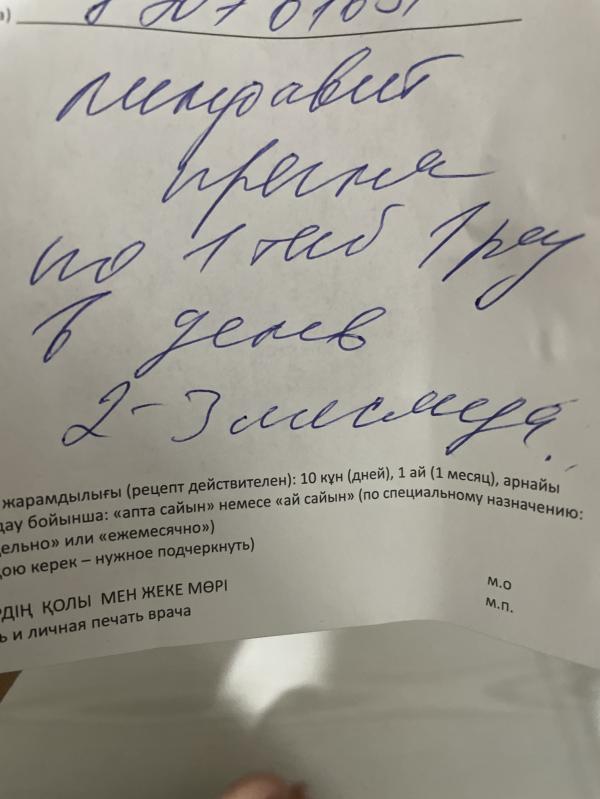 а)
прегна
по 1 таб 1 раз
в день
2-3 месяца.
жарамдылығы (рецепт действителен): 10 күн (дней), 1 ай (1 месяц), арнайы
дау бойынша: «апта сайын» немесе «ай сайын» (по специальному назначению:
дельно» или «ежемесячно»)
қою керек – нужное подчеркнуть)
РДІҢ ҚОЛЫ МЕН ЖЕКЕ МӨРІ м.о
ь и личная печать врача м.п.